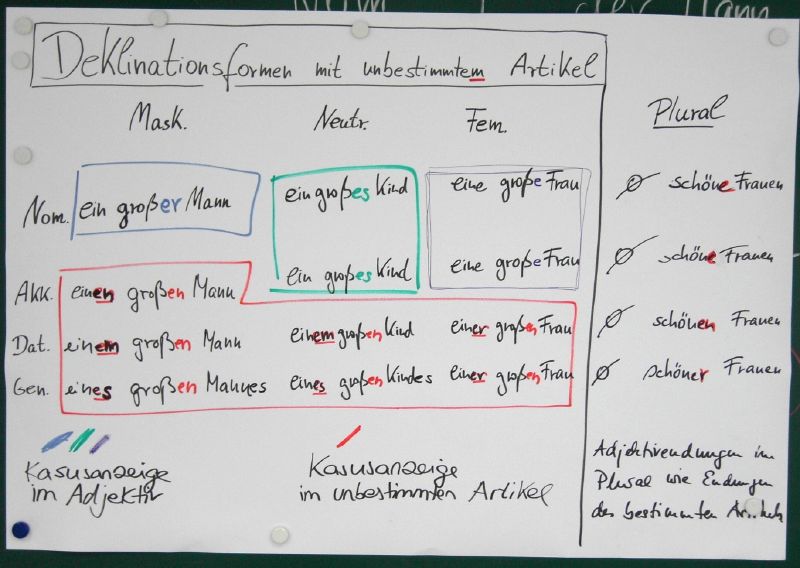 Deklinationsformen mit unbestimmtem Artikel
Mask. Neutr. Fem. Plural
Nom. ein großer Mann ein großes Kind eine große Frau Ø schöne Frauen
Akk. einen großen Mann ein großes Kind eine große Frau Ø schöne Frauen
Dat. einem großen Mann einem großen Kind einer großen Frau Ø schönen Frauen
Gen. eines großen Mannes eines großen Kindes einer großen Frau Ø schöner Frauen
Kasusanzeige
im Adjektiv
Kasusanzeige
im unbestimmten Artikel
Adjektivendungen im
Plural wie Endungen
des bestimmten Artikels
Mann